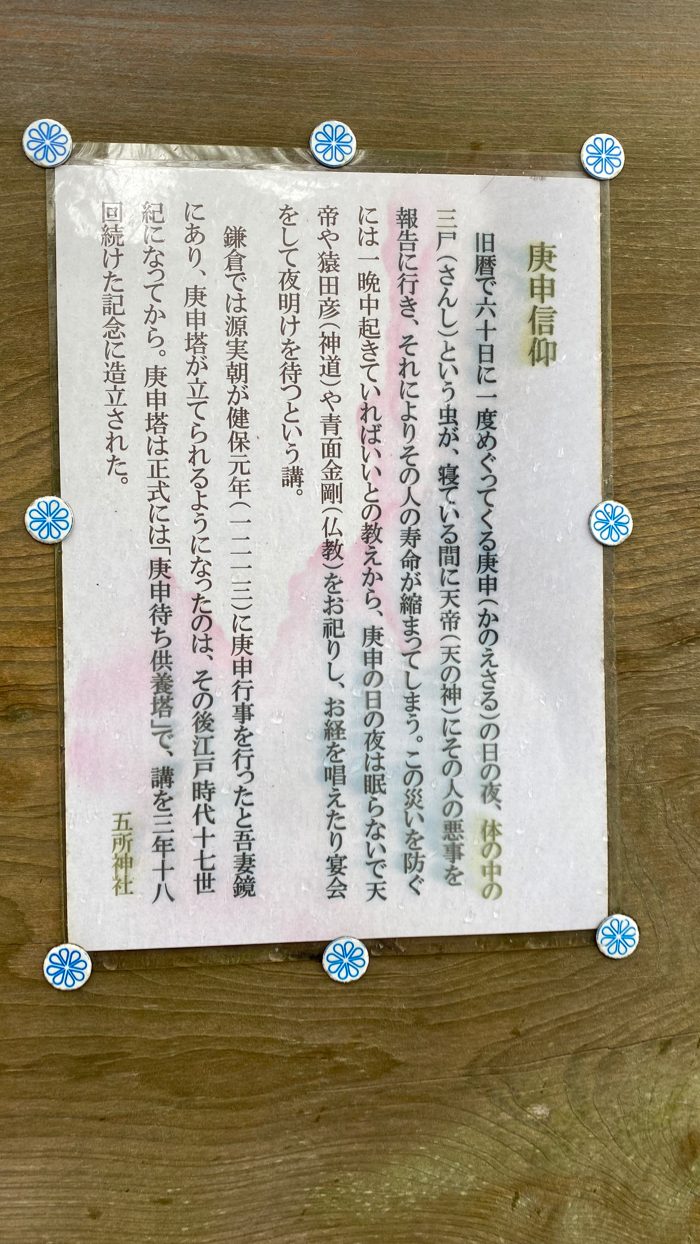 庚申信仰
旧暦で六十日に一度めぐってくる庚申(かのえさる)の日の夜、体の中の
三戸(さんし)という虫が、寝ている間に天帝(天の神)にその人の悪事を
報告に行き、それによりその人の寿命が縮まってしまう。この災いを防ぐ
には一晩中起きていればいいとの教えから、庚申の日の夜は眠らないで天
帝や猿田彦(神道)や青面金剛(仏教)をお祀りし、お経を唱えたり宴会
をして夜明けを待つという講。
鎌倉では源実朝が健保元年(一二一三)に庚申行事を行ったと吾妻鏡
にあり、庚申塔が立てられるようになったのは、その後江戸時代十七世
紀になってから。庚申塔は正式には「庚申待ち供養塔」で、講を三年十八
回続けた記念に造立された。
五所神社